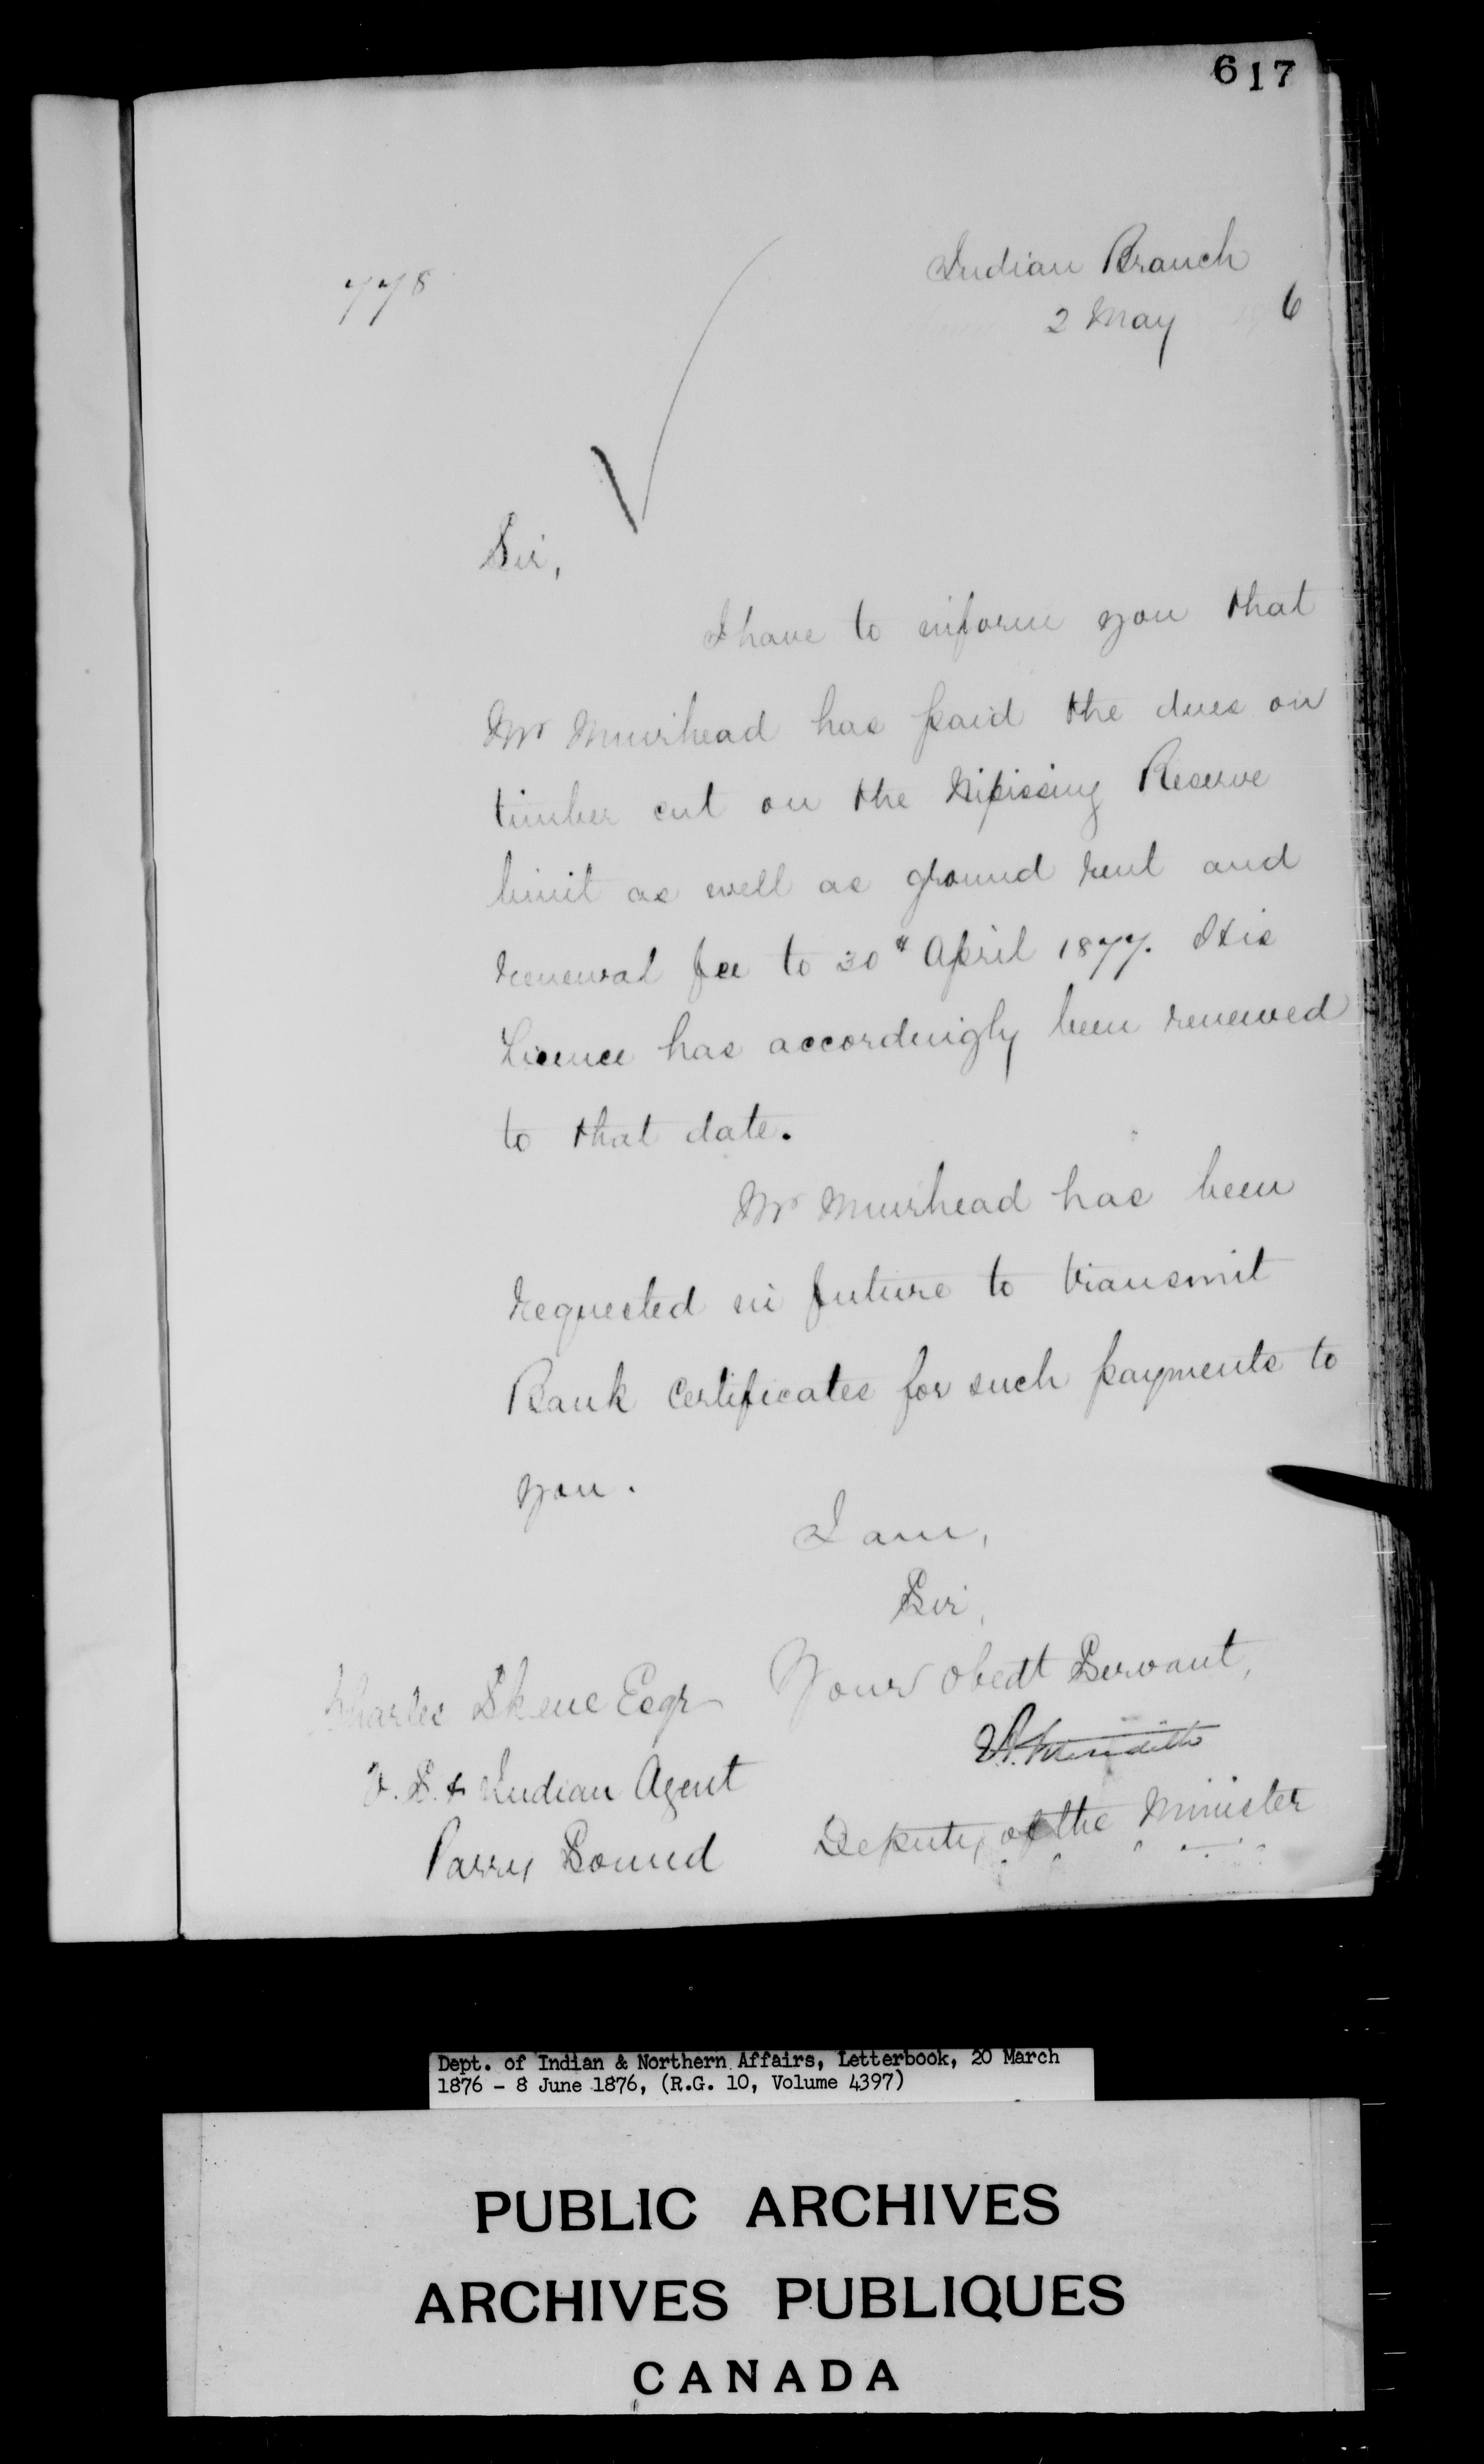 617
778
Indian Branch
2 May 6
Sir,
I have to inform you that
Mr Muirhead has paid the dues on
timber cut on the Nipissing Reserve
limit as well as ground rent and
renewal fee to 30th April 1877. His
Licence has accordingly been renewed
to that date.
Mr Muirhead has been
requested in future to transmit
Bank Certificates for such payments to
you.
I am,
Sir,
Your obedt Servant,
Charles Skene Esqr
V. S. & Indian Agent
Parry Sound
Meredith
Deputy of the Minister
Dept. of Indian & Northern Affairs, Letterbook, 20 March
1876 - 8 June 1876, (R.G. 10, Volume 4397)
PUBLIC ARCHIVES
ARCHIVES PUBLIQUES
CANADA